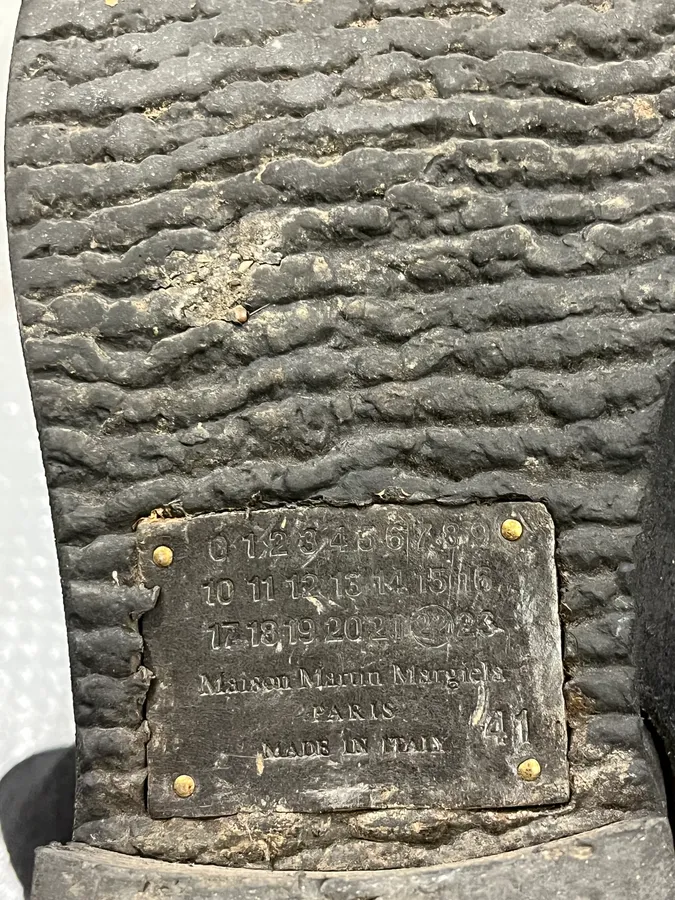 0 1 2 3 4 5 6 7 8 9
10 11 12 13 14 15 16
17 18 19 20 21 22 23
Maison Martin Margiela
PARIS
41
MADE IN ITALY